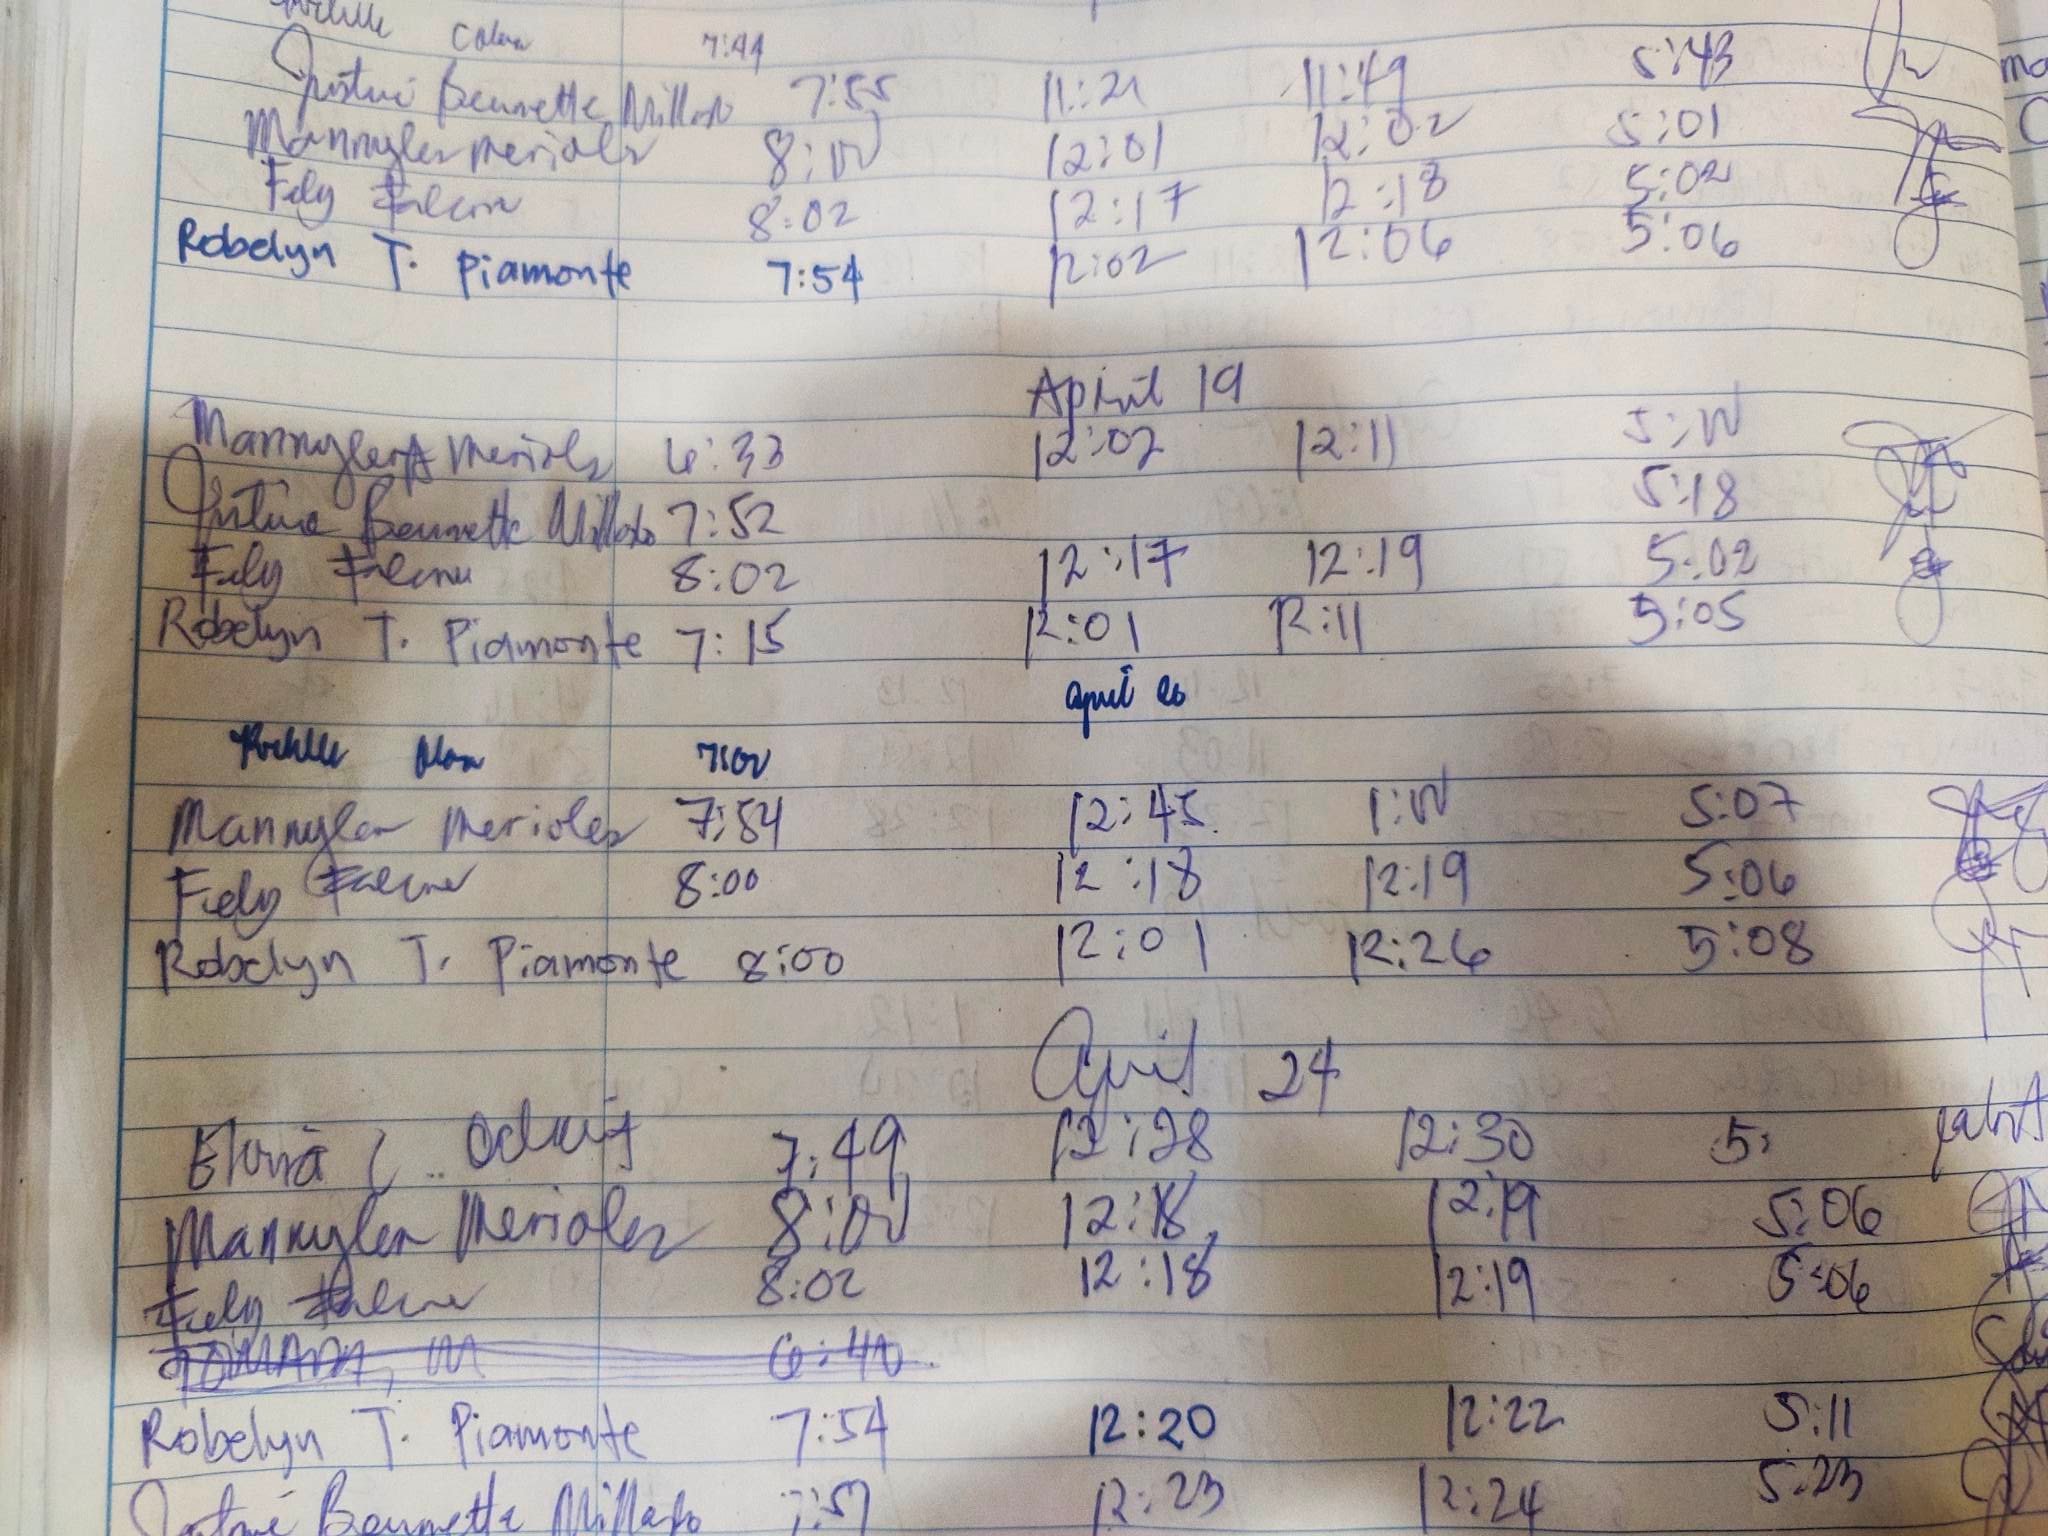 7:44
Justine Bennette Millado 7:55 11:21 11:49 5:43
Mannylen Merioles 8:00 12:01 12:02 5:01
Fely Falcone 8:02 12:17 12:18 5:02
Robelyn T. Piamonte 7:54 12:02 12:06 5:06
April 19
Mannylen Merioles 6:33 12:02 12:11 5:00
Justine Bennette Millado 7:52 5:18
Fely 8:02 12:17 12:19 5:02
Robelyn T. Piamonte 7:15 12:01 12:11 5:05
April 20
7:00
Mannylen Merioles 7:54 12:45 1:00 5:07
Fely 8:00 12:18 12:19 5:06
Robelyn T. Piamonte 8:00 12:01 12:26 5:08
April 24
7:49 12:28 12:30 5:
Mannylen Merioles 8:00 12:18 12:19 5:06
Fely 8:02 12:18 12:19 5:06
6:40
Robelyn T. Piamonte 7:54 12:20 12:22 5:11
Justine Bennette Millado 7:57 12:23 12:24 5:23